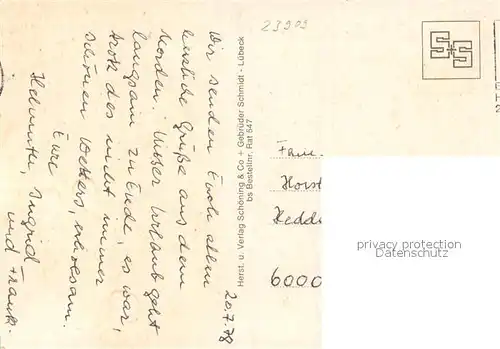 23909
20.7.78
Wir senden Euch allen
herzliche Grüße aus dem
Norden. Unser Urlaub geht
langsam zu Ende, es war,
trotz des nicht immer
schönen Wetters, erholsam.
Eure
Helmuter, Ingrid
und Frank.
Herst. u. Verlag Schöning & Co + Gebrüder Schmidt - Lübeck
bs Bestellnr. Rat 547
Fam.
Horst
Hedd
6000
privacy protection
Datenschutz